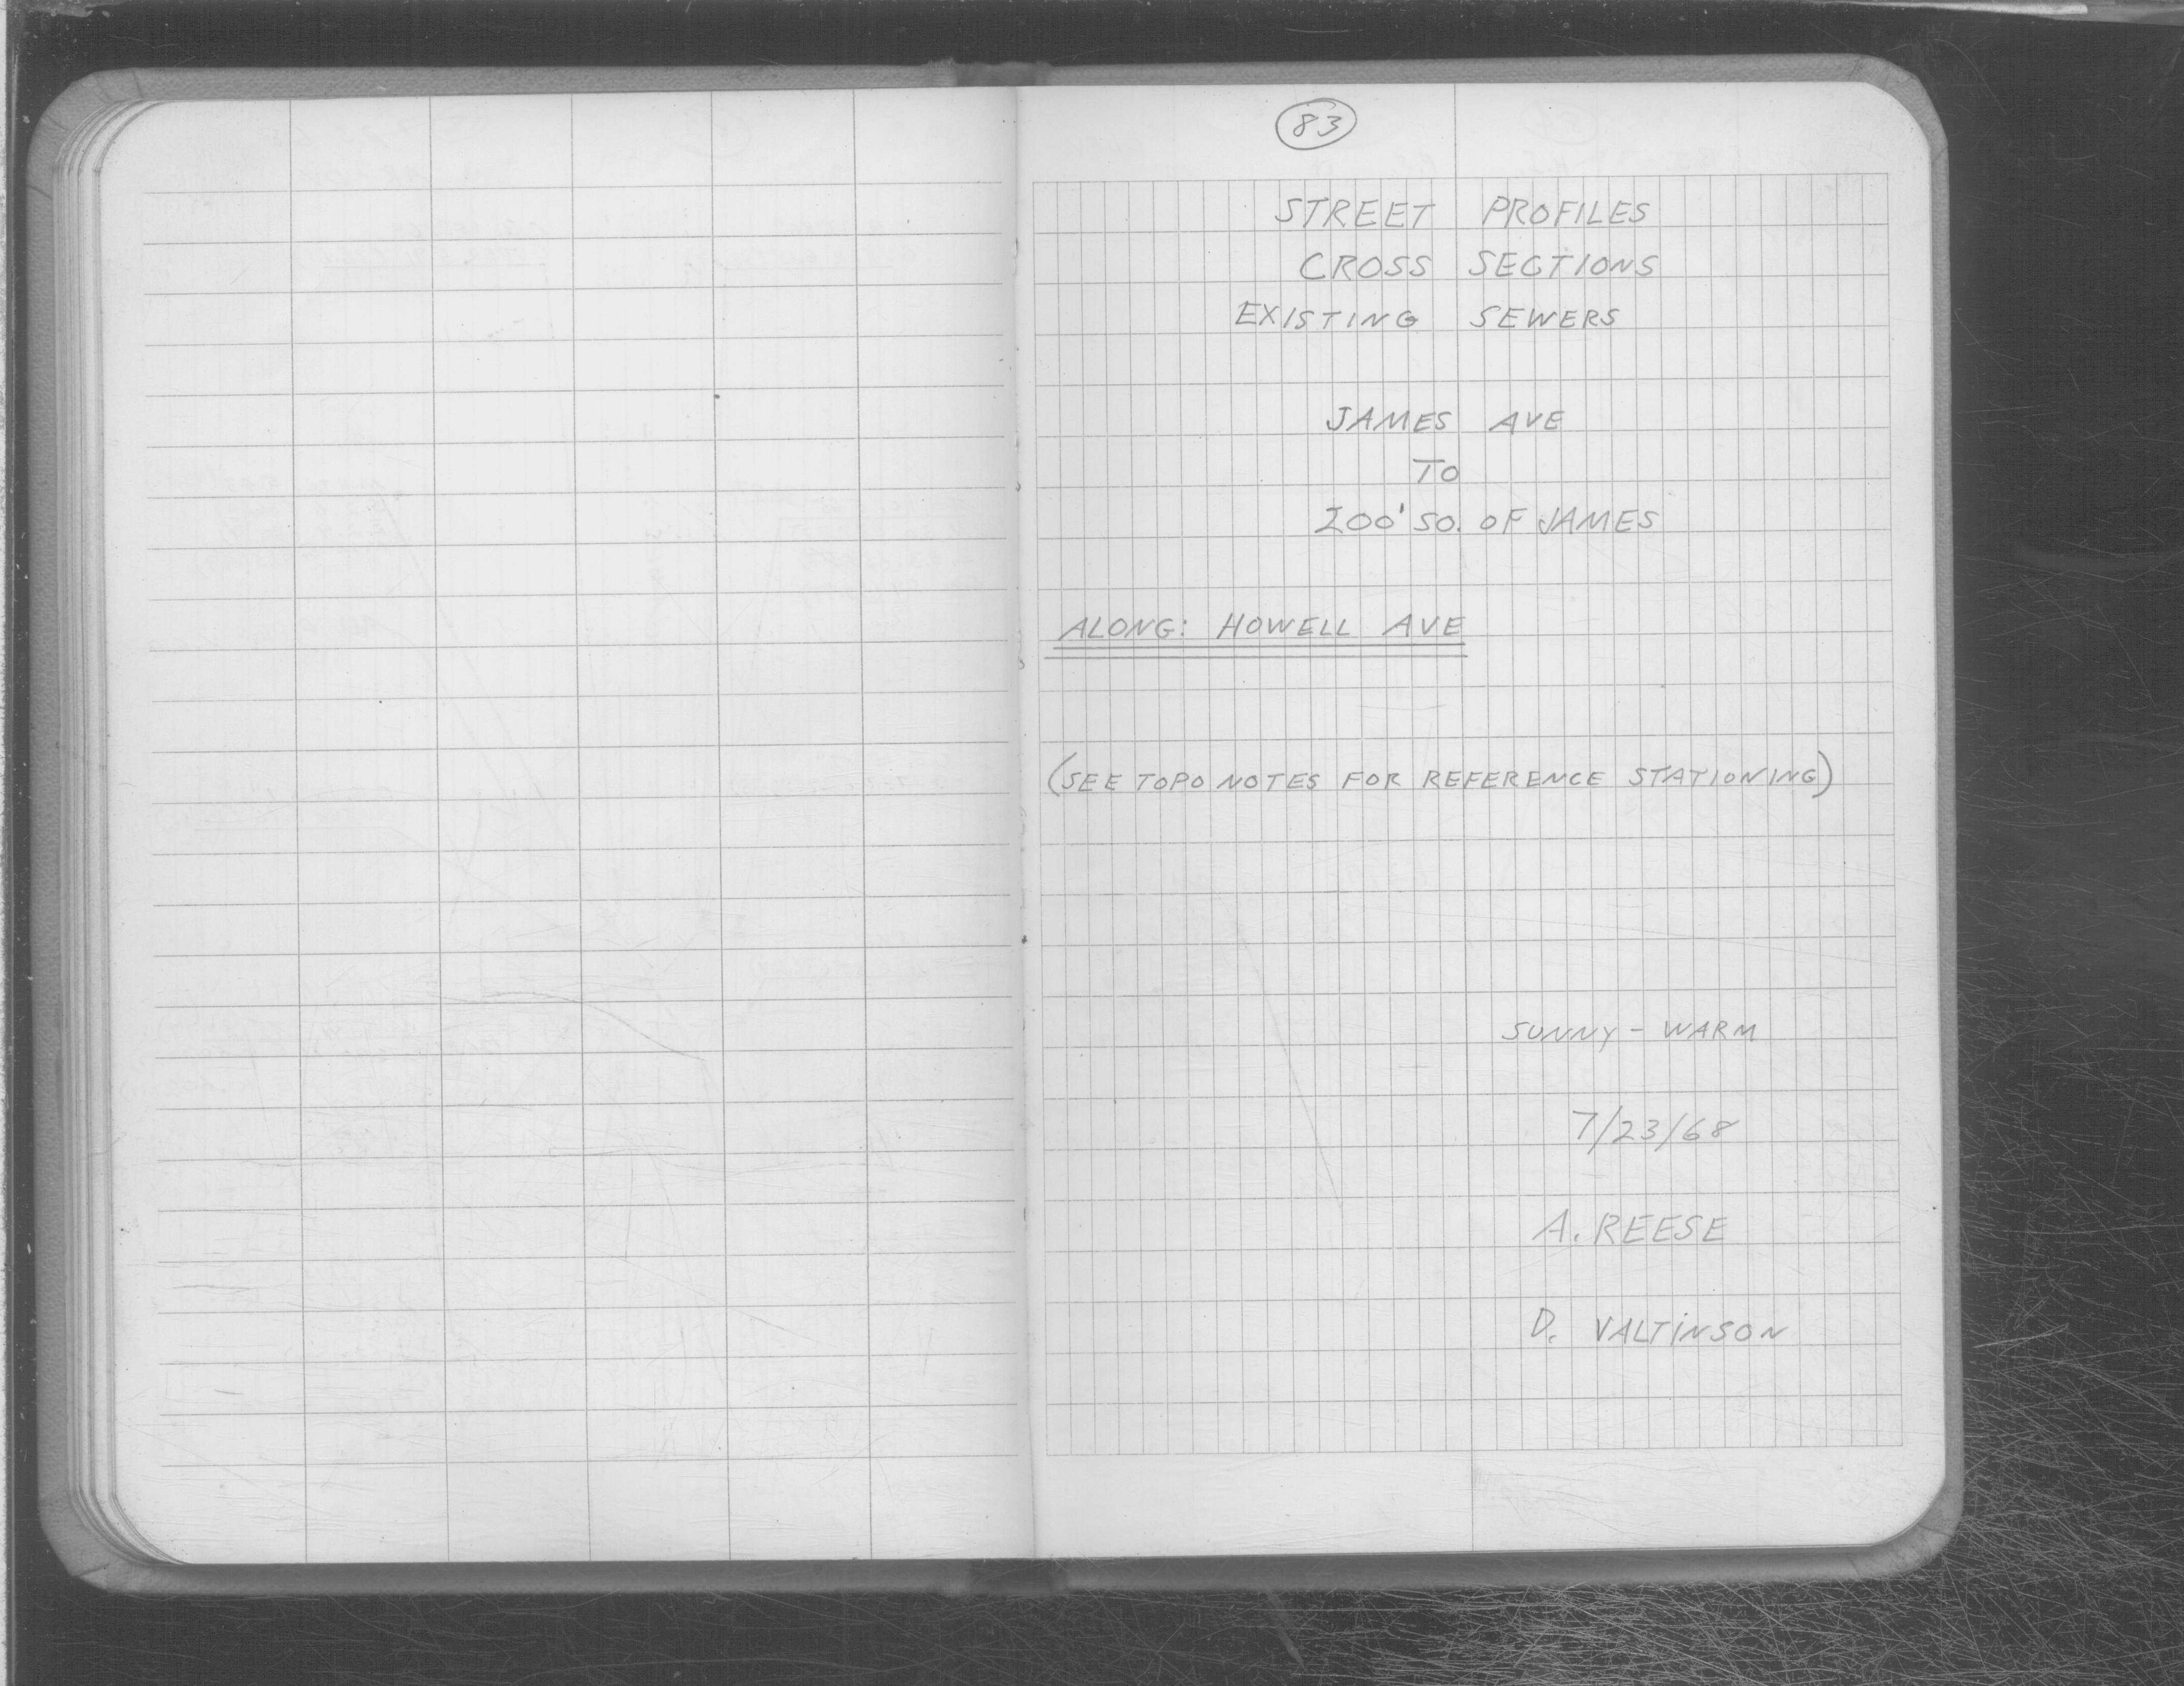 83
STREET PROFILES
CROSS SECTIONS
EXISTING SEWERS
JAMES AVE
TO
200' SO. OF JAMES
ALONG: HOWELL AVE
(SEE TOPO NOTES FOR REFERENCE STATIONING)
SUNNY - WARM
7/23/68
A. REESE
D. VALTINSON